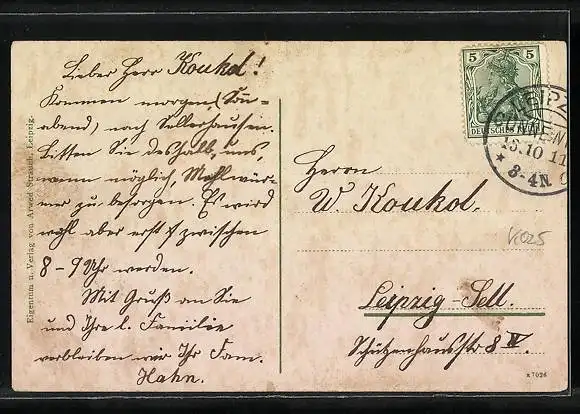 Lieber Herr Koukol!
Kommen morgen (Sonn-
abend) nach Sellerhausen.
Bitten Sie deshalb, uns,
wenn möglich, Mehlwür-
mer zu besorgen. Es wird
wohl aber erst zwischen
8-9 Uhr werden.
Mit Gruß an Sie
und Ihre l. Familie
verbleiben wir Ihr Fam.
Hahn.
Eigentum u. Verlag von Arwed Strauch, Leipzig.
5 5
DEUTSCHES REICH
LEIPZ
13.10 11
* 3-4N
Herrn
W. Koukol.
K025
Leipzig-Sell.
Schützenhausstr 8 IV.
* 7026